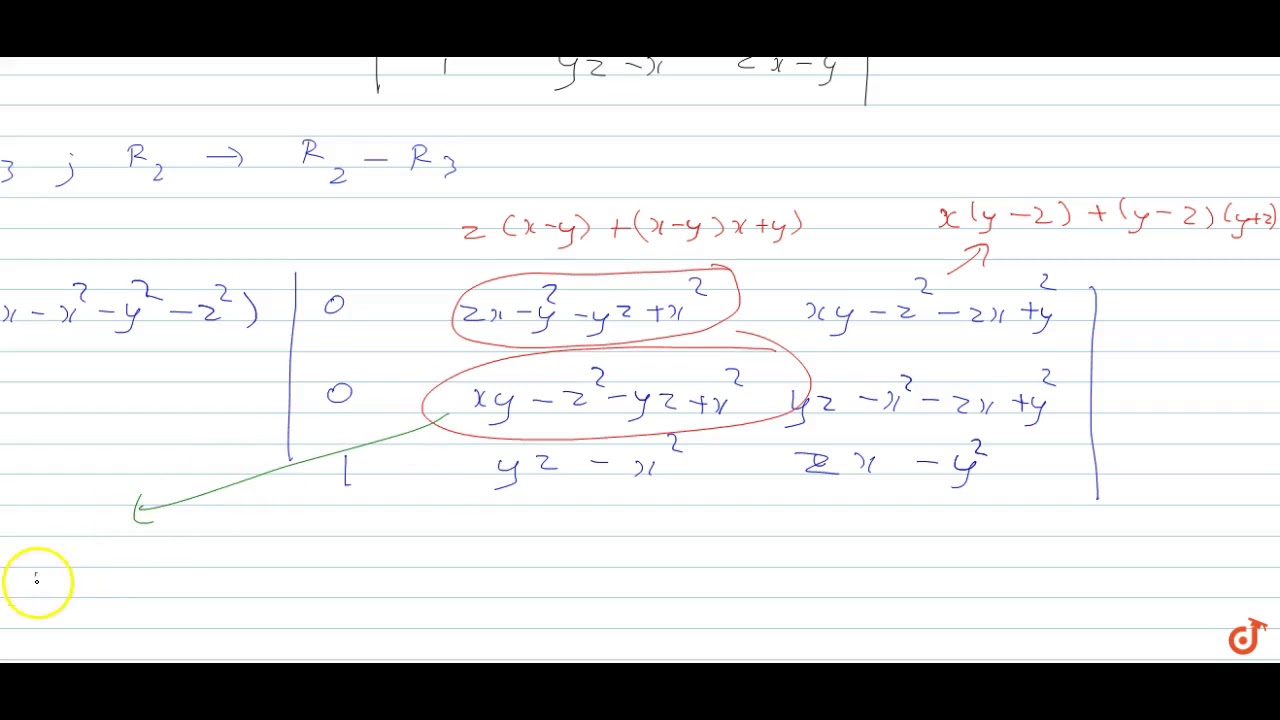 1 yz - x zx - y
3 ; R₂ → R₂ - R₃
z (x-y) + (x-y) x+y)
x(y-z) + (y-z)(y+z)
x - x² - y² - z²) | 0 zx - y² - yz + x² xy - z² - zx + y² |
0 xy - z² - yz + x² yz - x² - zx + y²
1 yz - x² zx - y²